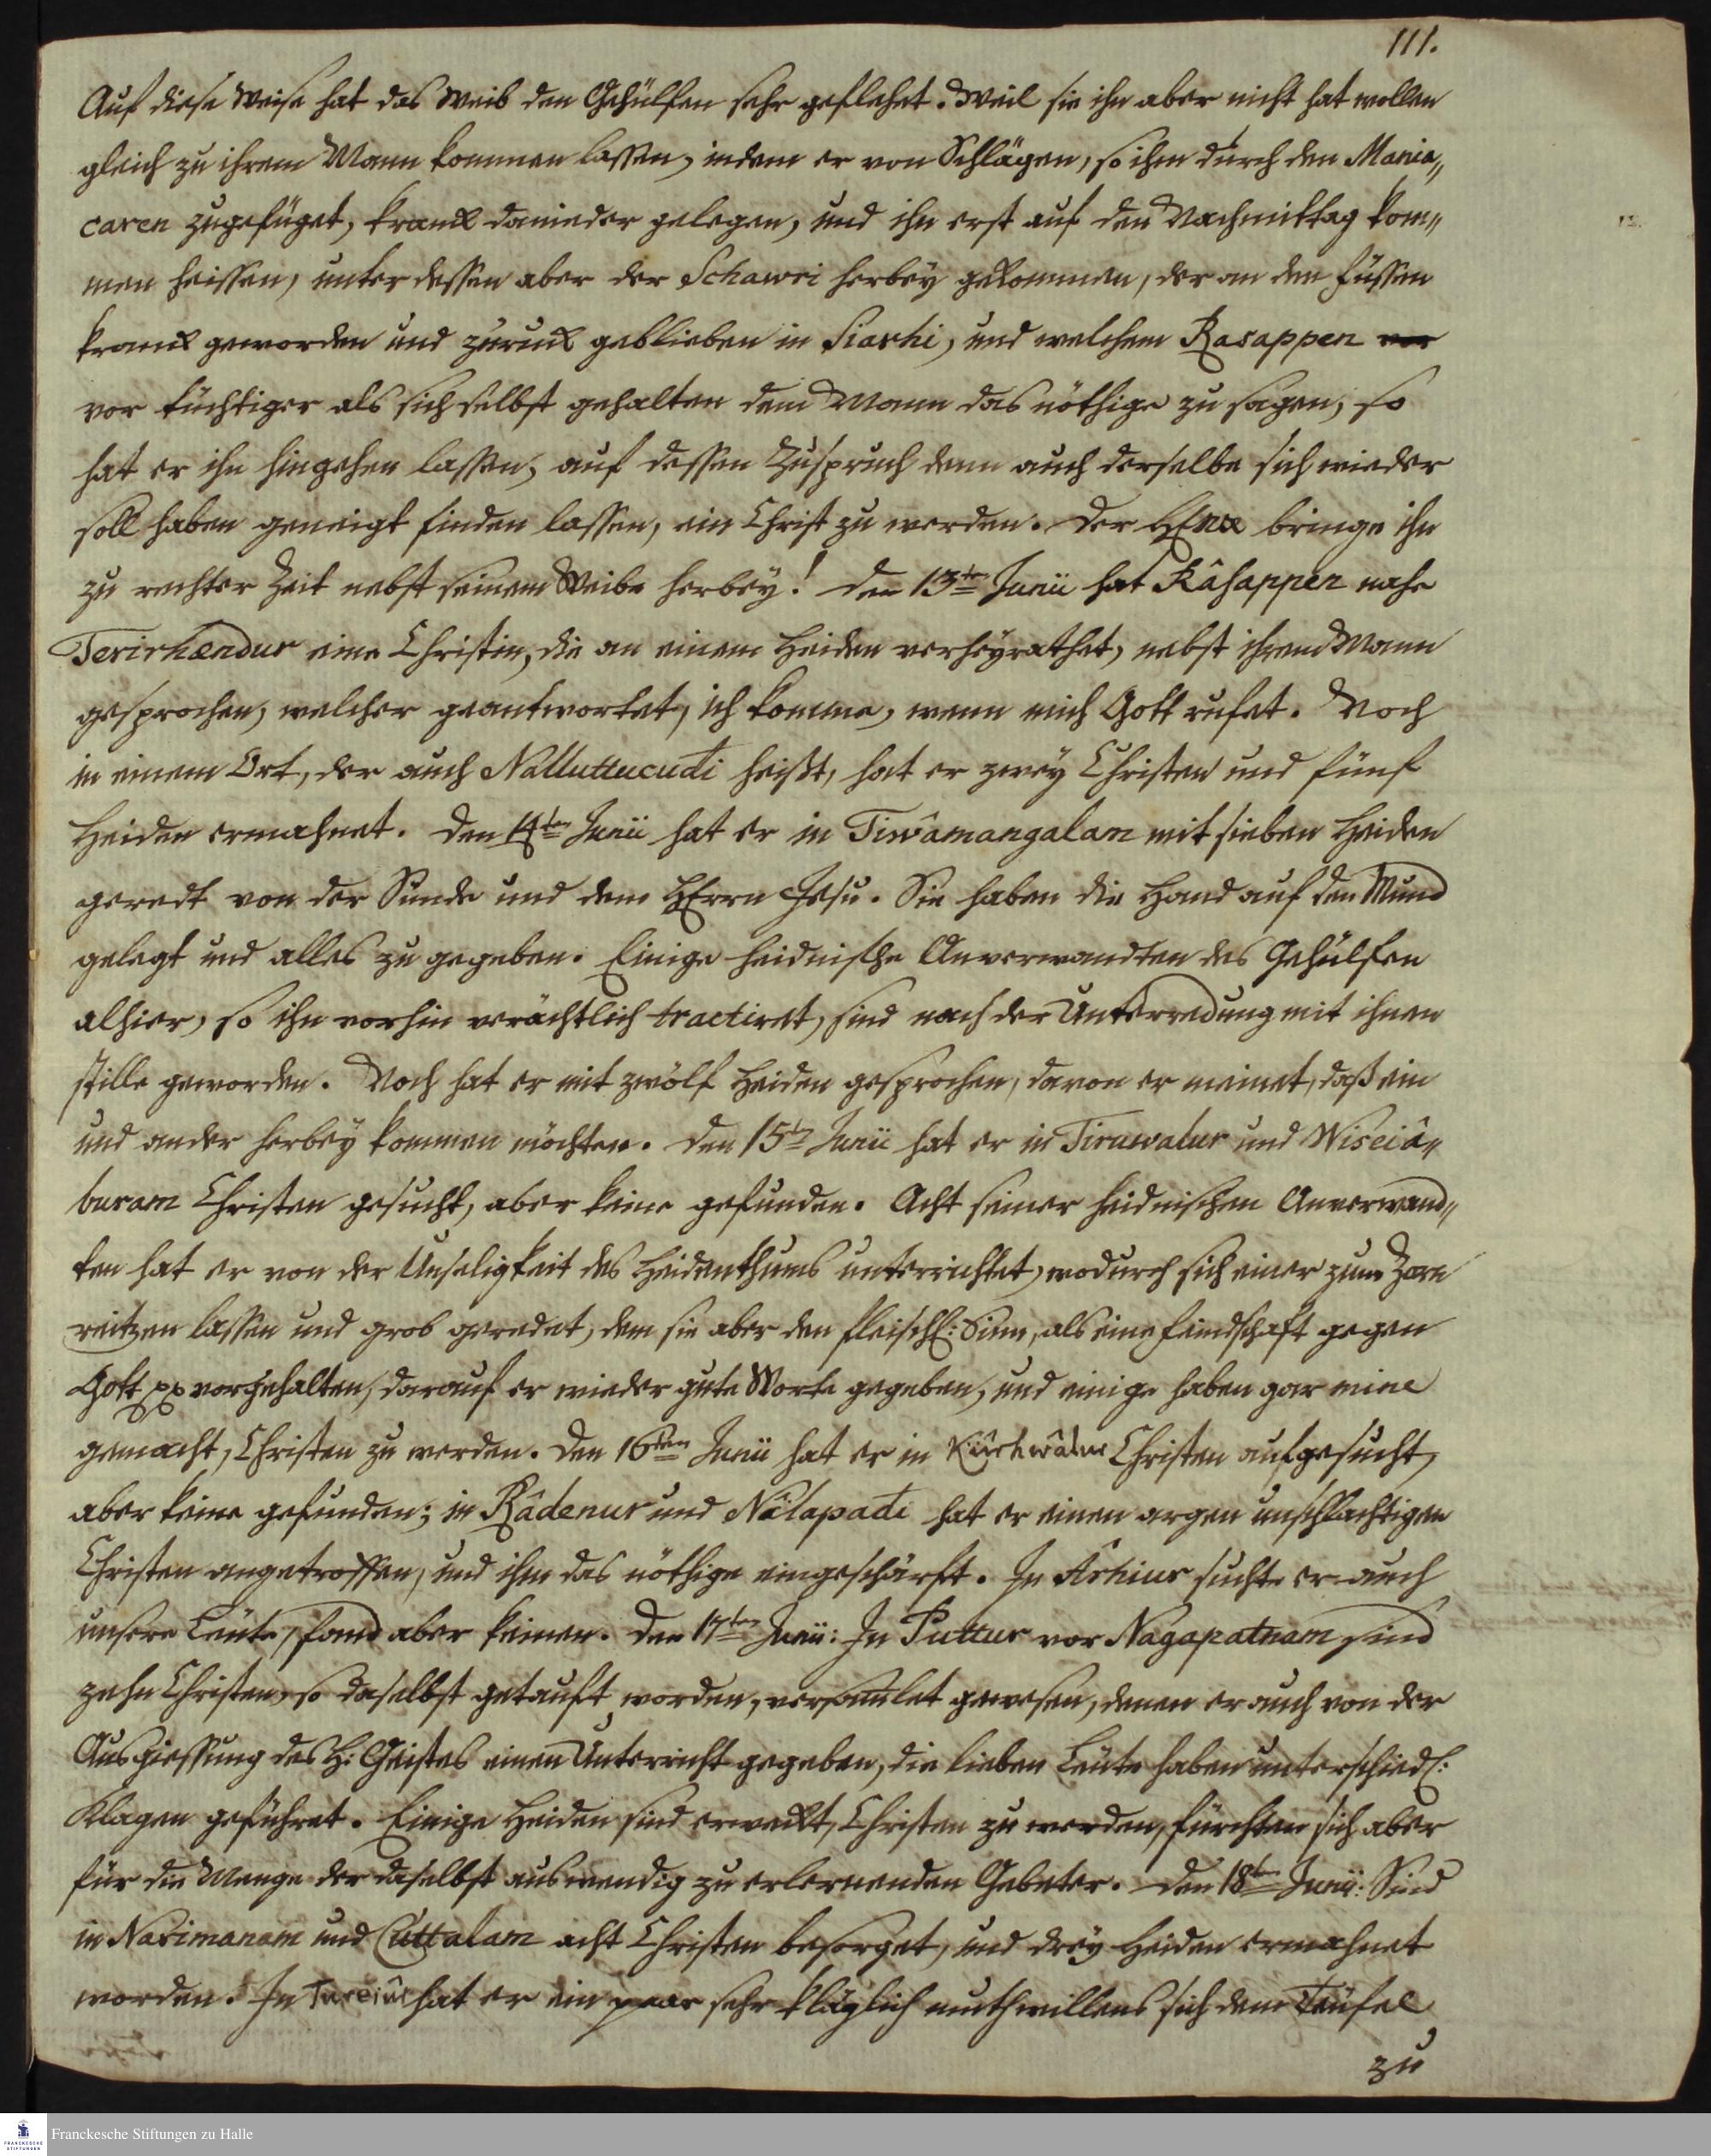 111.
Auf diese Weise hat das Weib den Gehülfen sehr geflehet. Weil sie ihn aber nicht hat wollen
gleich zu ihrem Mann kommen lassen, indem er von Schlägen, so ihm durch den Mania„
caren zugefüget, kranck danieder gelegen, und ihn erst auf den Nachmittag kom„
men heissen, unterdessen aber der Schawri herbeÿ gekommen, der an den Füssen
kranck geworden und zurück geblieben in Siarhi, und welchem Rasappen vor
vor tüchtiger als sich selbst gehalten dem Mann das nöthige zu sagen, so
hat er ihn hingehen lassen, auf dessen Zuspruch denn auch derselbe sich wieder
soll haben geneigt finden lassen, ein Christ zu werden. Der HErr bringe ihn
zu rechter Zeit nebst seinem Weibe herbeÿ! Den 13ten Junii hat Râsappen nahe
Terirhændur eine Christin, die an einem Heiden verheÿrathet, nebst ihrem Mann
gesprochen, welcher geantwortet, ich komme, wenn mich Gott rufet. Noch
in einem Ort, der auch Nalluttucudi heißt, hat er zweÿ Christen und fünf
Heiden ermahnet. Den 14ten Junii hat er in Tiwâmangalam mit sieben Heiden
geredt von der Sünde und dem HErrn Jesu. Sie haben die Hand auf den Mund
gelegt und alles zu gegeben. Einige heidnische Anverwandten des Gehülfen
alhier, so ihn vorhin verächtlich tractiret, sind nach der Unterredung mit ihnen
stille geworden. Noch hat er mit zwölf Heiden gesprochen, davon er meinet, daß ein
und ander herbeÿ kommen möchten. Den 15ten Junii hat er in Tiruwalur und Wiseiâ„
buram Christen gesucht, aber keine gefunden. Acht seiner heidnischen Anverwand„
ten hat er von der Unseligkeit des Heidenthums unterrichtet, wodurch sich einer zum Zorn
reitzen lassen und grob geredet, dem sie aber den fleischl: Sinn, als eine Feindschaft gegen
Gott pp vorgehalten, darauf er wieder gute Worte gegeben, und einige haben gar mine
gemacht, Christen zu werden. Den 16ten Junii hat er in Christen aufgesucht,
aber keine gefunden; in Râdenur und Nâlapadi hat er einen argen unschlachtigen
Christen angetroffen, und ihm das nöthige eingeschärft. In Arhiur suchte er auch
unsere Leute, fand aber keinen. Den 17ten Junii: In Puttur vor Nagapatnam sind
zehn Christen, so daselbst getauft worden, versamlet gewesen, denen er auch von der
Ausgiessung des H: Geistes einen Unterricht gegeben, die lieben Leute haben unterschiedl:
Klagen geführet. Einige Heiden sind erweckt, Christen zu werden, fürchten sich aber
für die Menge der daselbst auswendig zu erlernenden Gebeter. Den 18ten Junii: Sind
in Narimanam und Cuttalam acht Christen besorget, und dreÿ Heiden ermahnet
worden. In hat er ein paar sehr kläglich muthwillens sich dem Teufel
zu
Franckesche Stiftungen zu Halle